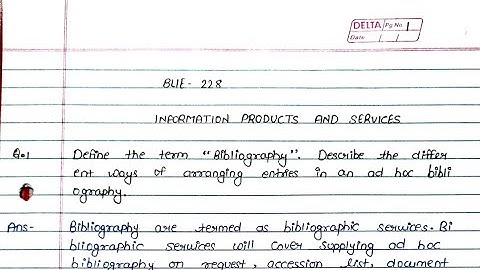 DELTA Pg No. 1
Date / /
BLIE - 228
INFORMATION PRODUCTS AND SERVICES
Q.1 Define the term "Bibliography". Describe the differ
ent ways of arranging entries in an ad hoc bibli
ography.
Ans- Bibliography are termed as bibliographic services. Bi
bliographic services will cover supplying ad hoc
bibliography on request, accession list, document